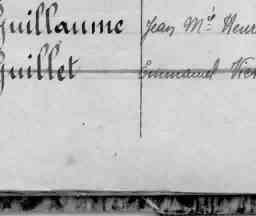 Guillaume Jean M.é Henr
Guillet Emmanuel Vic